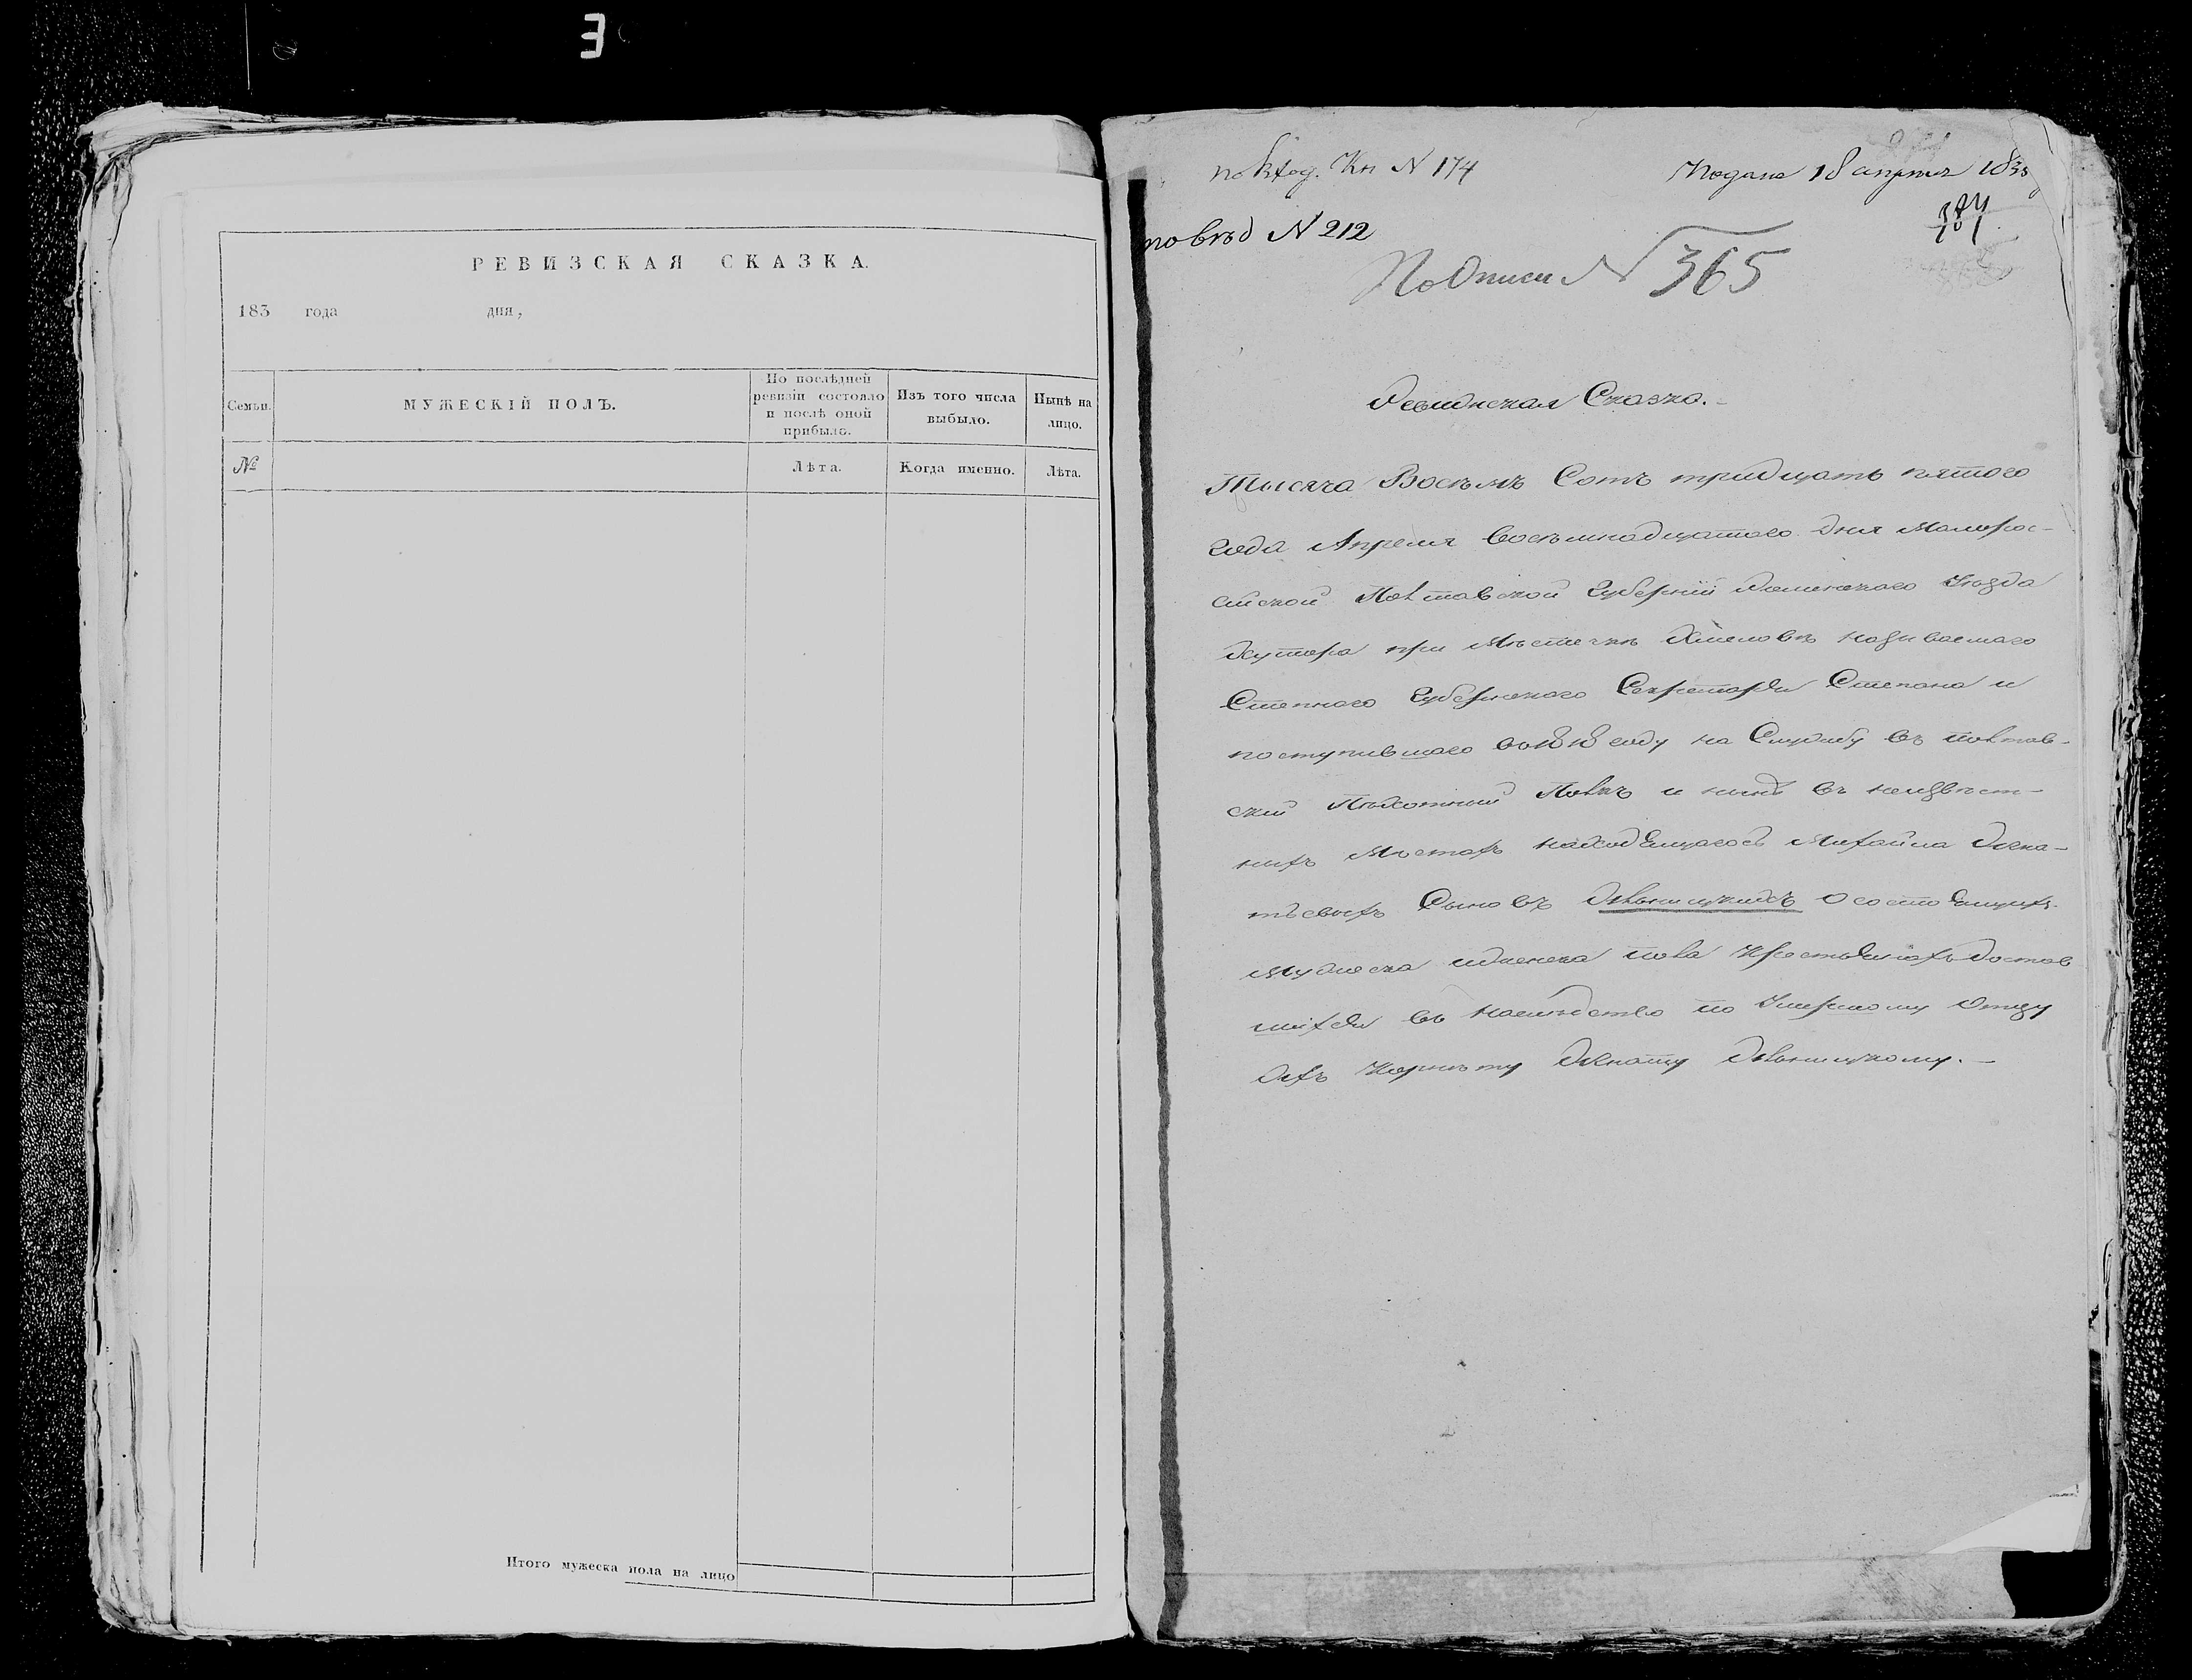 РЕВИЗСКАЯ СКАЗКА.
183 года дня,
Семьи.
МУЖЕСКІЙ ПОЛЪ.
По послѣдней
ревизіи состояло
и послѣ оной
прибыло.
Изъ того числа
выбыло.
Нынѣ на
лицо.
№
Лѣта.
Когда именно.
Лѣта.
Итого мужеска пола на лицо
по Кн N 174
Подана 18 апреля 1835
по вѣд N 212
По Описи N 365
Ревизская Сказка.
Тысяча Восемъ Сотъ тридцать пятого
года Апреля восемнадцатого дня Малорос-
сійской Полтавской Губерніи Роменского Уѣзда
Хутора при Мѣстечкѣ Хмеловѣ называемаго
Степного Губернского Секретаря Степана и
поступившаго году на Службу въ полтав-
скій Пѣхотный Полкъ и нынѣ въ неизвѣст-
ныхъ Мѣстахъ находящагося Михайла Игна-
тьевыхъ Сыновъ О состоящихъ
мужеска и женска пола крестьянахъ достав
шихся въ наслѣдство по Умершому Отцу
Ихъ Корнету Игнату